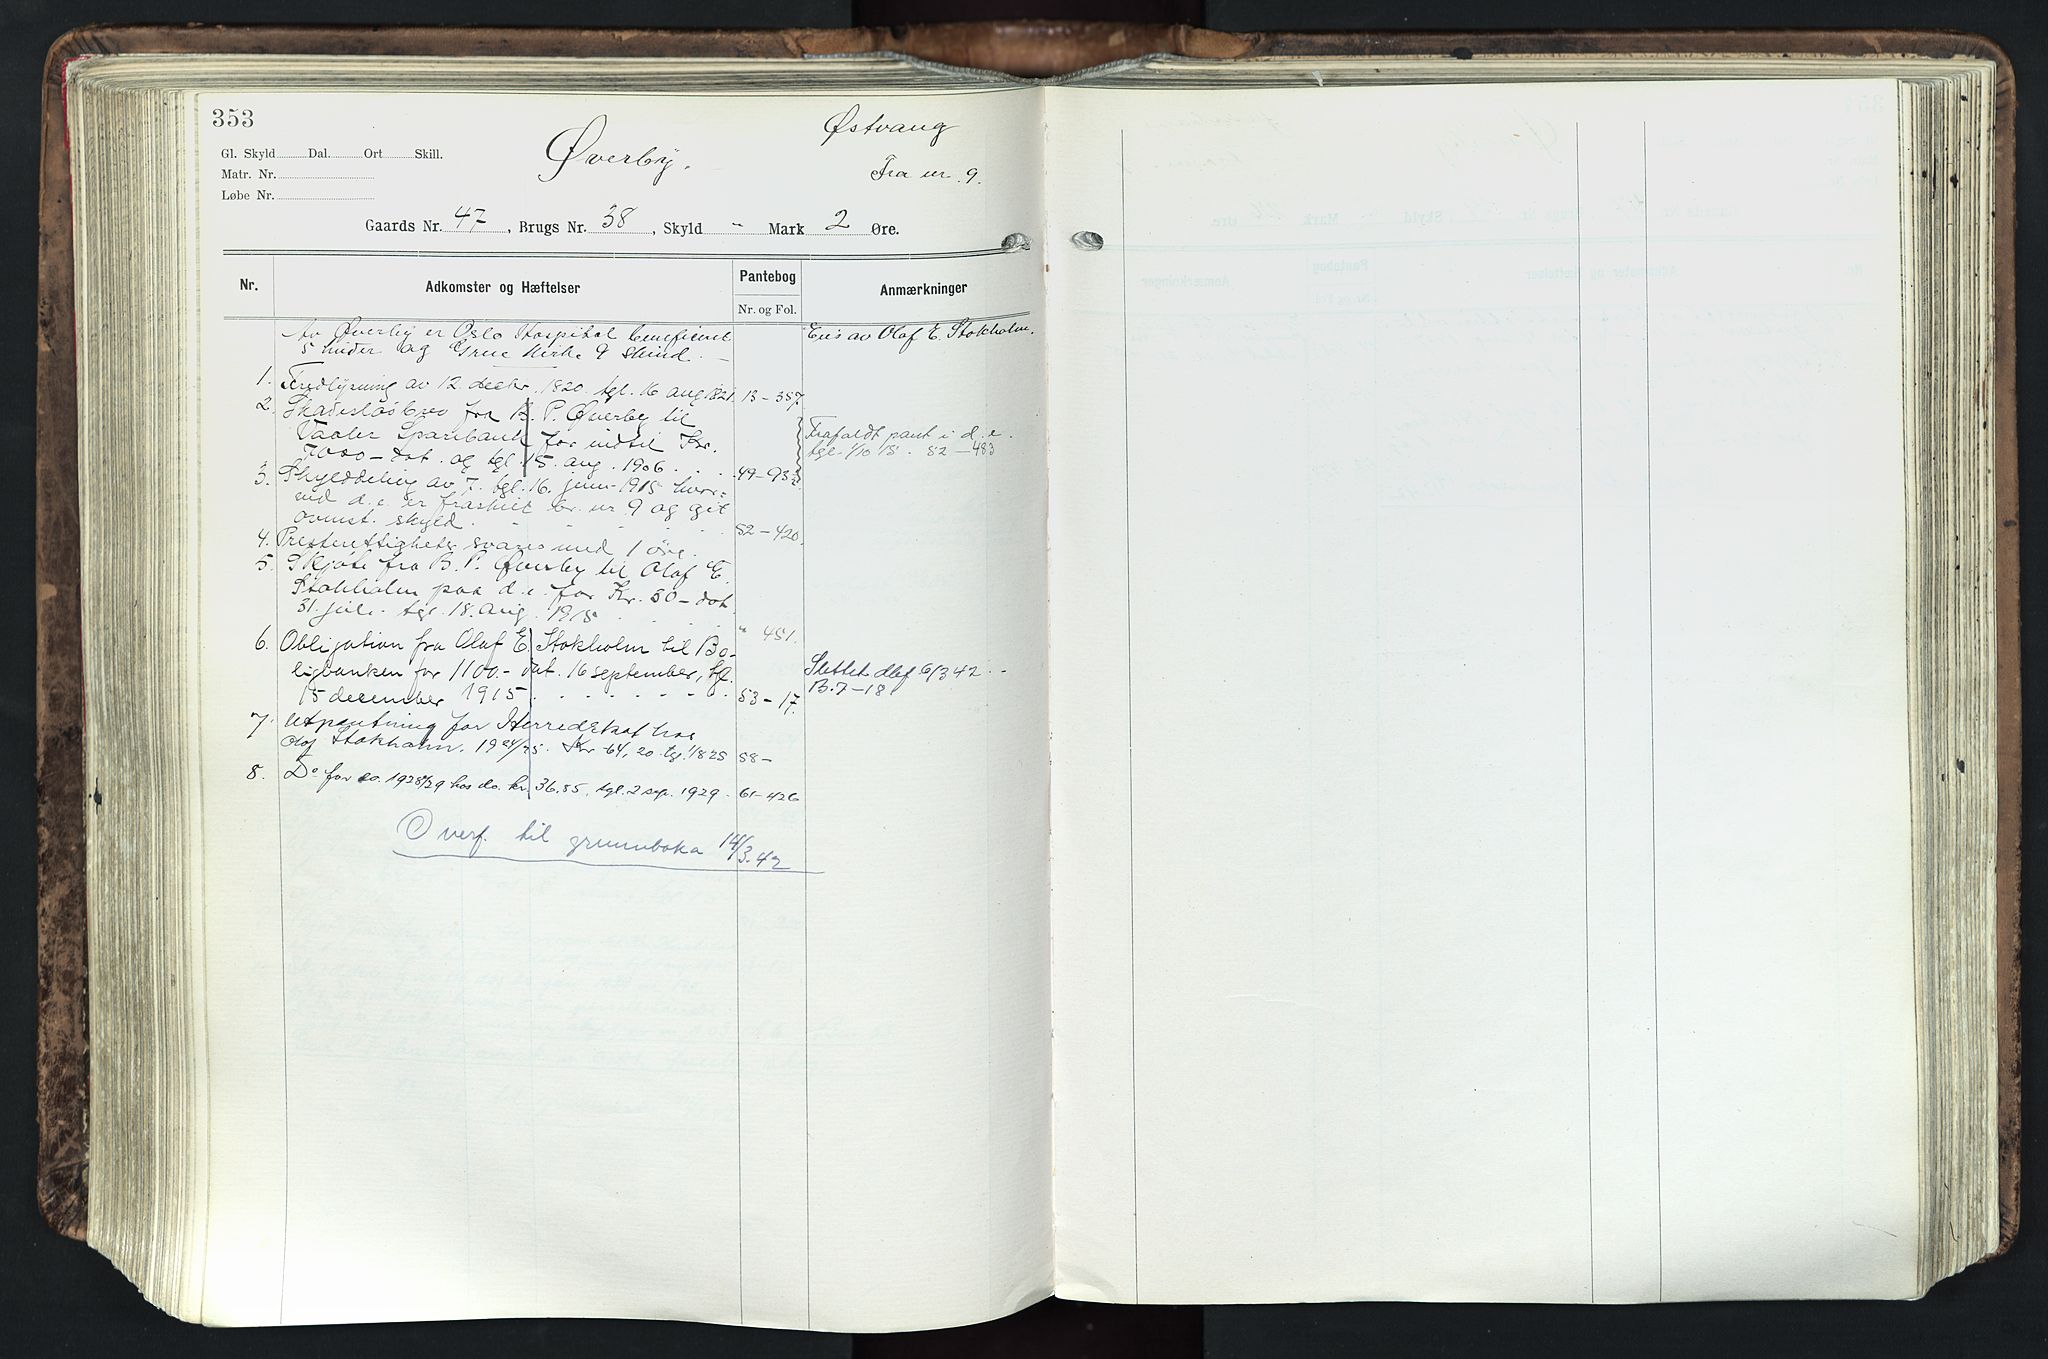 353
Østvang
Øverby.
Fra nr. 9.
Gl. Skyld Dal. Ort Skill.
Matr. Nr.
Løbe Nr.
Gaards Nr. 47, Brugs Nr. 38, Skyld " Mark 2 Øre.
Nr. Adkomster og Hæftelser Pantebog Anmærkninger
Nr. og Fol.
Av Øverby er Oslo Hospital beneficeret Eies av Olaf E. Stokholm.
5 huder og Grue Kirke 9 skind.
1. Fredlysning av 12 decbr. 1820 tgl. 16 aug 1821 13-357
2. Skadesløsbrev fra B. P. Øverby til
Vaaler Sparebank for indtil Kr. Frafaldt pant i d. e.
7000- dat. og tgl. 15. aug. 1906. 49-93 tgl. 1/10 15. 52-483
3. Skylddeling av 7. tgl. 16. juni 1915 hvor-
ved d.e. er fraskilt br. nr 9 og git
ovnst. skyld. 52-420.
4. Presterettigheter svares med 1 øre.
5. Skjøte fra B. P. Øverby til Olaf E.
Stokholm paa d.e. for Kr. 50- dat.
31. juli. tgl. 18. aug. 1915 " 451.
6. Obligation fra Olaf E. Stokholm til Bo-
ligbanken for 1100.- dat. 16 september, tgl. Slettet dbf 6/3 42
15 december 1915. 53-17. B.7-18
7. Utpantning for Herredskat hos
Olaf Stokholm. 1924/25. Kr 64,20 tgl. 1/8 25 58-
8. Do for do. 1928/29 hos do. kr. 36.85, tgl. 2 sep. 1929. 61-426
Overf. til grunnboka 14/3.42